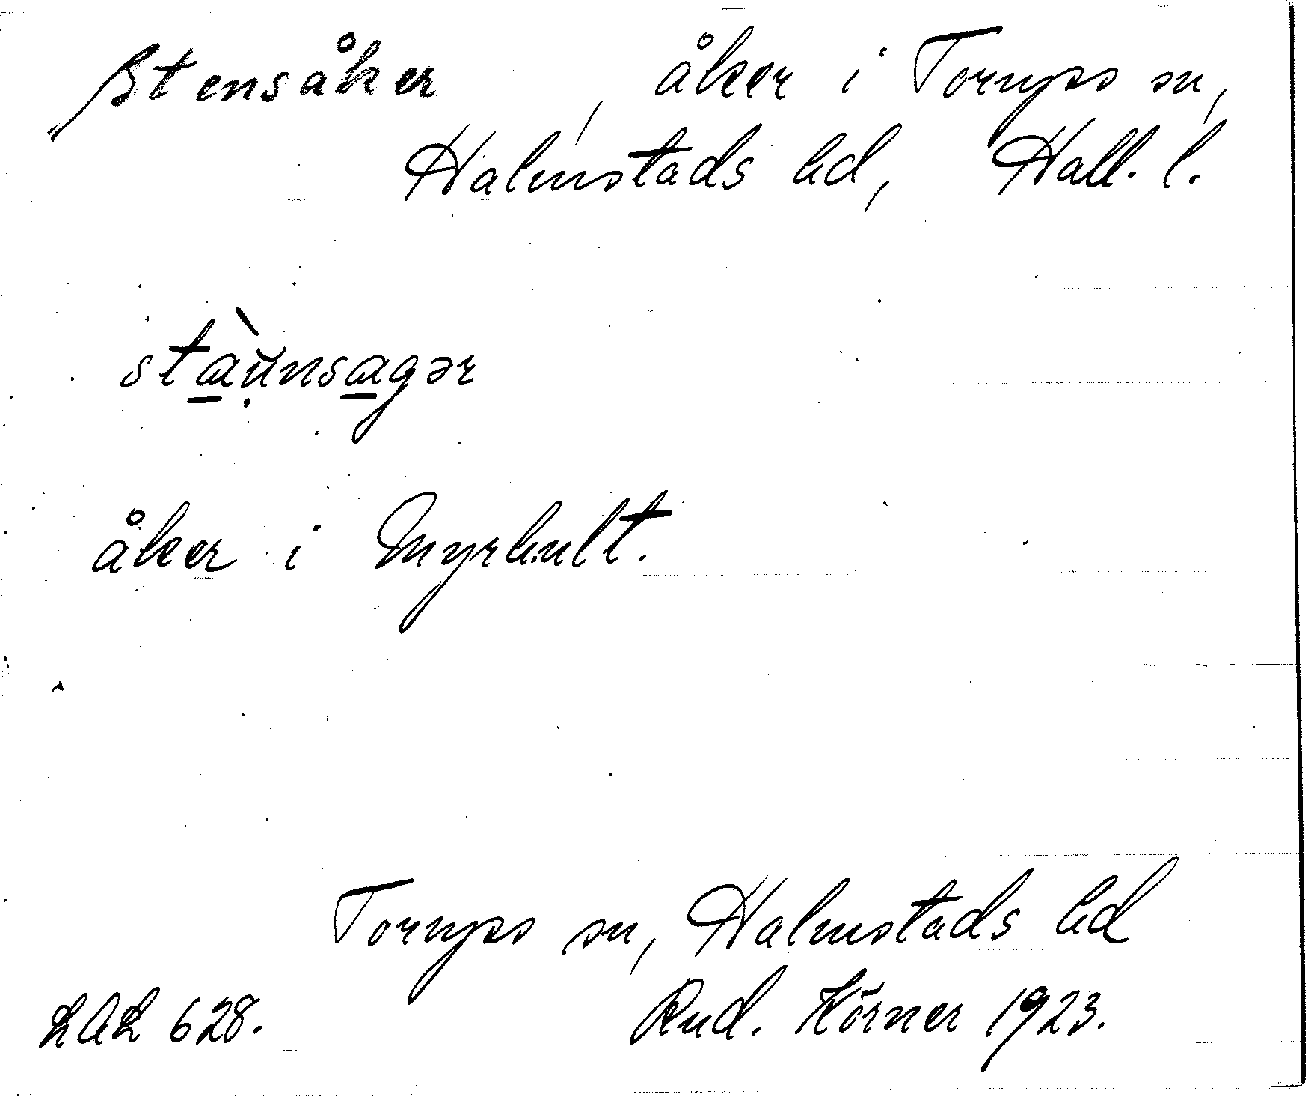 Stensåker, åker i Torups sn,
Halmstads hd, Hall. l.
stàu̯nsagər
åker i Myrhult.
Torups sn, Halmstads hd
LAL 628. Rud. Körner 1923.